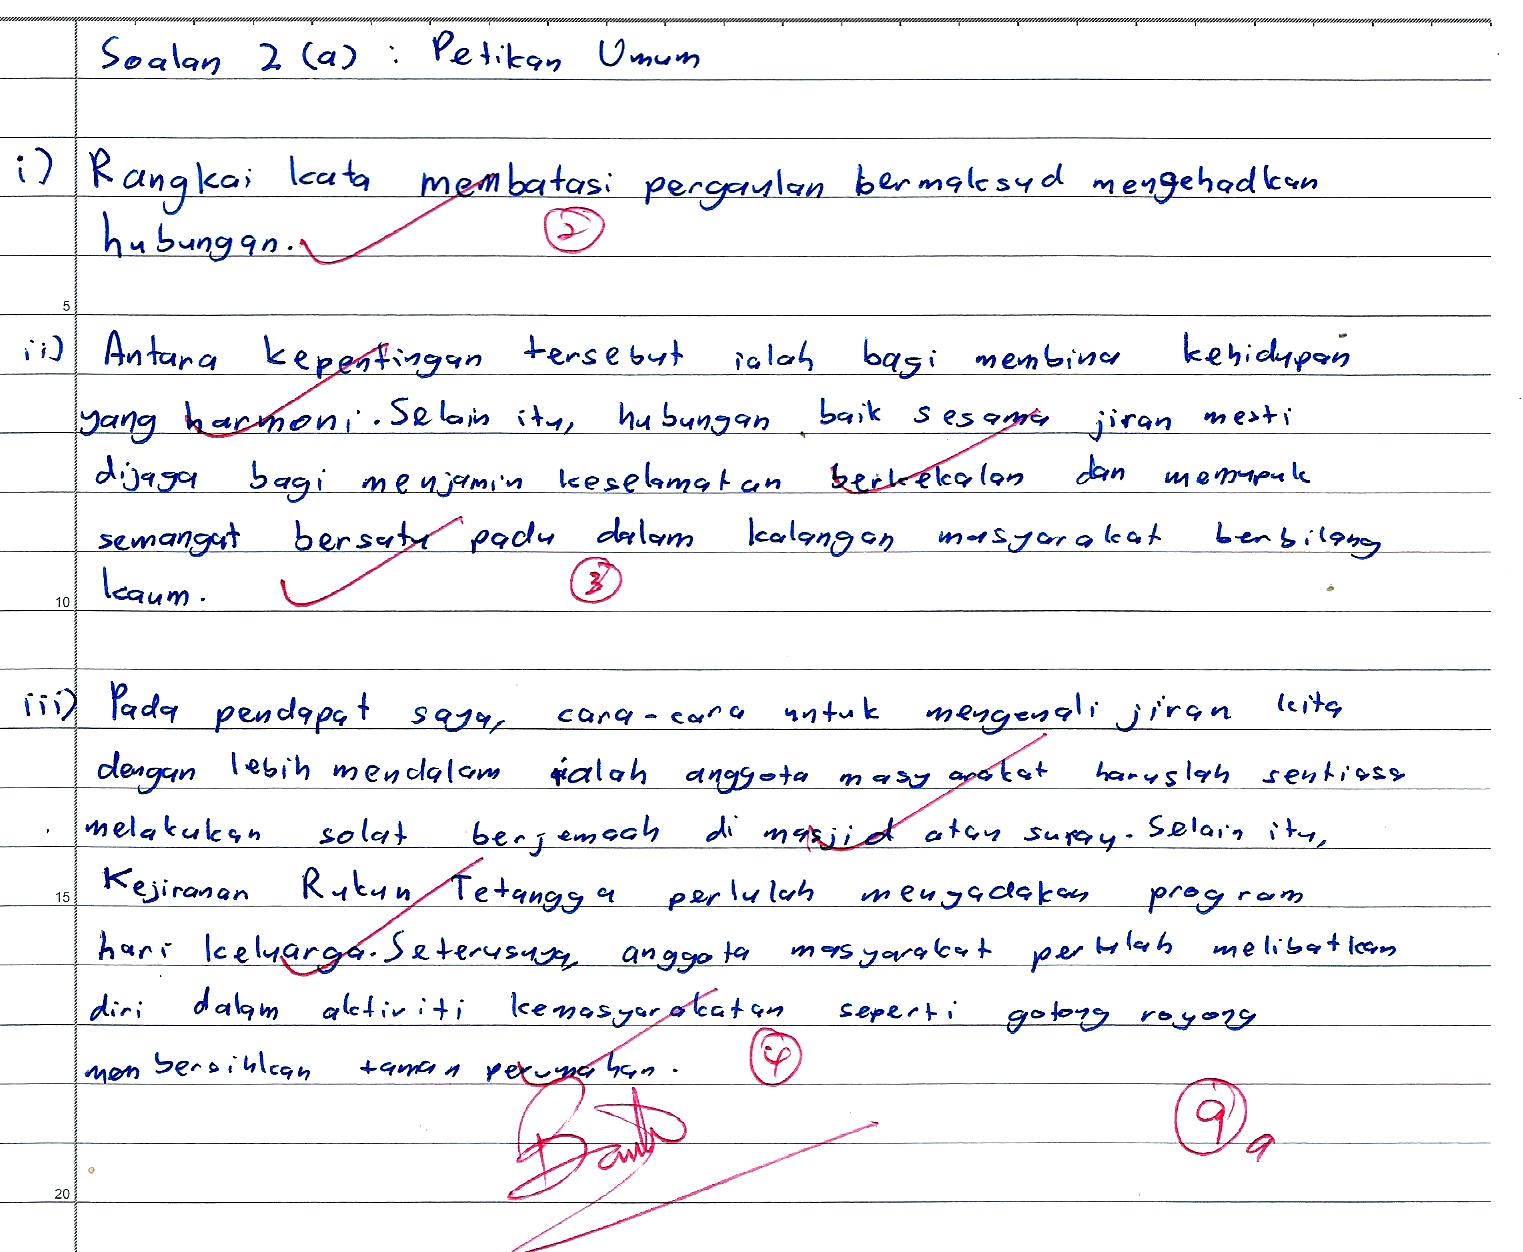 Soalan 2 (a) : Petikan Umum
i) Rangkai kata membatasi pergaulan bermaksud mengehadkan
hubungan.
2
5
ii) Antara kepentingan tersebut ialah bagi membina kehidupan
yang harmoni. Selain itu, hubungan baik sesama jiran mesti
dijaga bagi menjamin keselamatan berkekalan dan memupuk
semangat bersatu padu dalam kalangan masyarakat berbilang
10 kaum.
3
iii) Pada pendapat saya, cara-cara untuk mengenali jiran kita
dengan lebih mendalam ialah anggota masyarakat haruslah sentiasa
melakukan solat berjemaah di masjid atau surau. Selain itu,
15 Kejiranan Rukun Tetangga perlulah mengadakan program
hari keluarga. Seterusnya, anggota masyarakat perlulah melibatkan
diri dalam aktiviti kemasyarakatan seperti gotong royong
membersihkan taman perumahan.
4
9
9
20